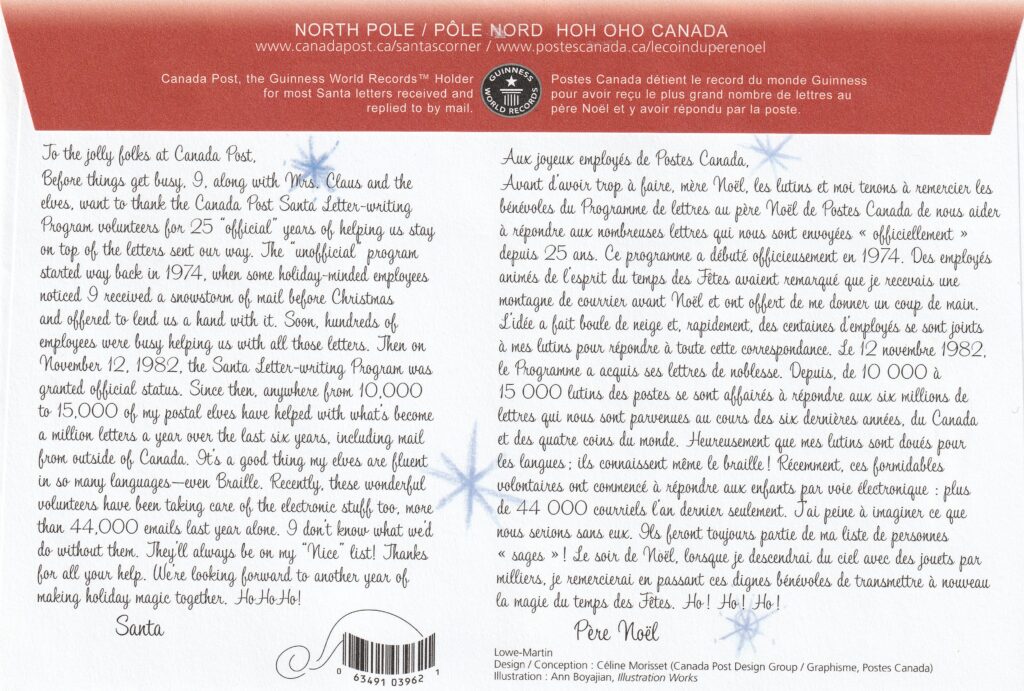 NORTH POLE / PÔLE NORD HOH OHO CANADA
www.canadapost.ca/santascorner / www.postescanada.ca/lecoinduperenoel
Canada Post, the Guinness World Records™ Holder
for most Santa letters received and
replied to by mail.
GUINNESS
WORLD RECORDS
Postes Canada détient le record du monde Guinness
pour avoir reçu le plus grand nombre de lettres au
père Noël et y avoir répondu par la poste.
To the jolly folks at Canada Post,
Before things get busy, I, along with Mrs. Claus and the
elves, want to thank the Canada Post Santa Letter-writing
Program volunteers for 25 "official" years of helping us stay
on top of the letters sent our way. The "unofficial" program
started way back in 1974, when some holiday-minded employees
noticed I received a snowstorm of mail before Christmas
and offered to lend us a hand with it. Soon, hundreds of
employees were busy helping us with all those letters. Then on
November 12, 1982, the Santa Letter-writing Program was
granted official status. Since then, anywhere from 10,000
to 15,000 of my postal elves have helped with what's become
a million letters a year over the last six years, including mail
from outside of Canada. It's a good thing my elves are fluent
in so many languages—even Braille. Recently, these wonderful
volunteers have been taking care of the electronic stuff too, more
than 44,000 emails last year alone. I don't know what we'd
do without them. They'll always be on my "Nice" list! Thanks
for all your help. We're looking forward to another year of
making holiday magic together. Ho Ho Ho!
Santa
Aux joyeux employés de Postes Canada,
Avant d'avoir trop à faire, mère Noël, les lutins et moi tenons à remercier les
bénévoles du Programme de lettres au père Noël de Postes Canada de nous aider
à répondre aux nombreuses lettres qui nous sont envoyées « officiellement »
depuis 25 ans. Ce programme a débuté officieusement en 1974. Des employés
animés de l'esprit du temps des Fêtes avaient remarqué que je recevais une
montagne de courrier avant Noël et ont offert de me donner un coup de main.
L'idée a fait boule de neige et, rapidement, des centaines d'employés se sont joints
à mes lutins pour répondre à toute cette correspondance. Le 12 novembre 1982,
le Programme a acquis ses lettres de noblesse. Depuis, de 10 000 à
15 000 lutins des postes se sont affairés à répondre aux six millions de
lettres qui nous sont parvenues au cours des six dernières années, du Canada
et des quatre coins du monde. Heureusement que mes lutins sont doués pour
les langues ; ils connaissent même le braille ! Récemment, ces formidables
volontaires ont commencé à répondre aux enfants par voie électronique : plus
de 44 000 courriels l'an dernier seulement. J'ai peine à imaginer ce que
nous serions sans eux. Ils feront toujours partie de ma liste de personnes
« sages » ! Le soir de Noël, lorsque je descendrai du ciel avec des jouets par
milliers, je remercierai en passant ces dignes bénévoles de transmettre à nouveau
la magie du temps des Fêtes. Ho ! Ho ! Ho !
Père Noël
0 63491 03962 1
Lowe-Martin
Design / Conception : Céline Morisset (Canada Post Design Group / Graphisme, Postes Canada)
Illustration : Ann Boyajian, Illustration Works